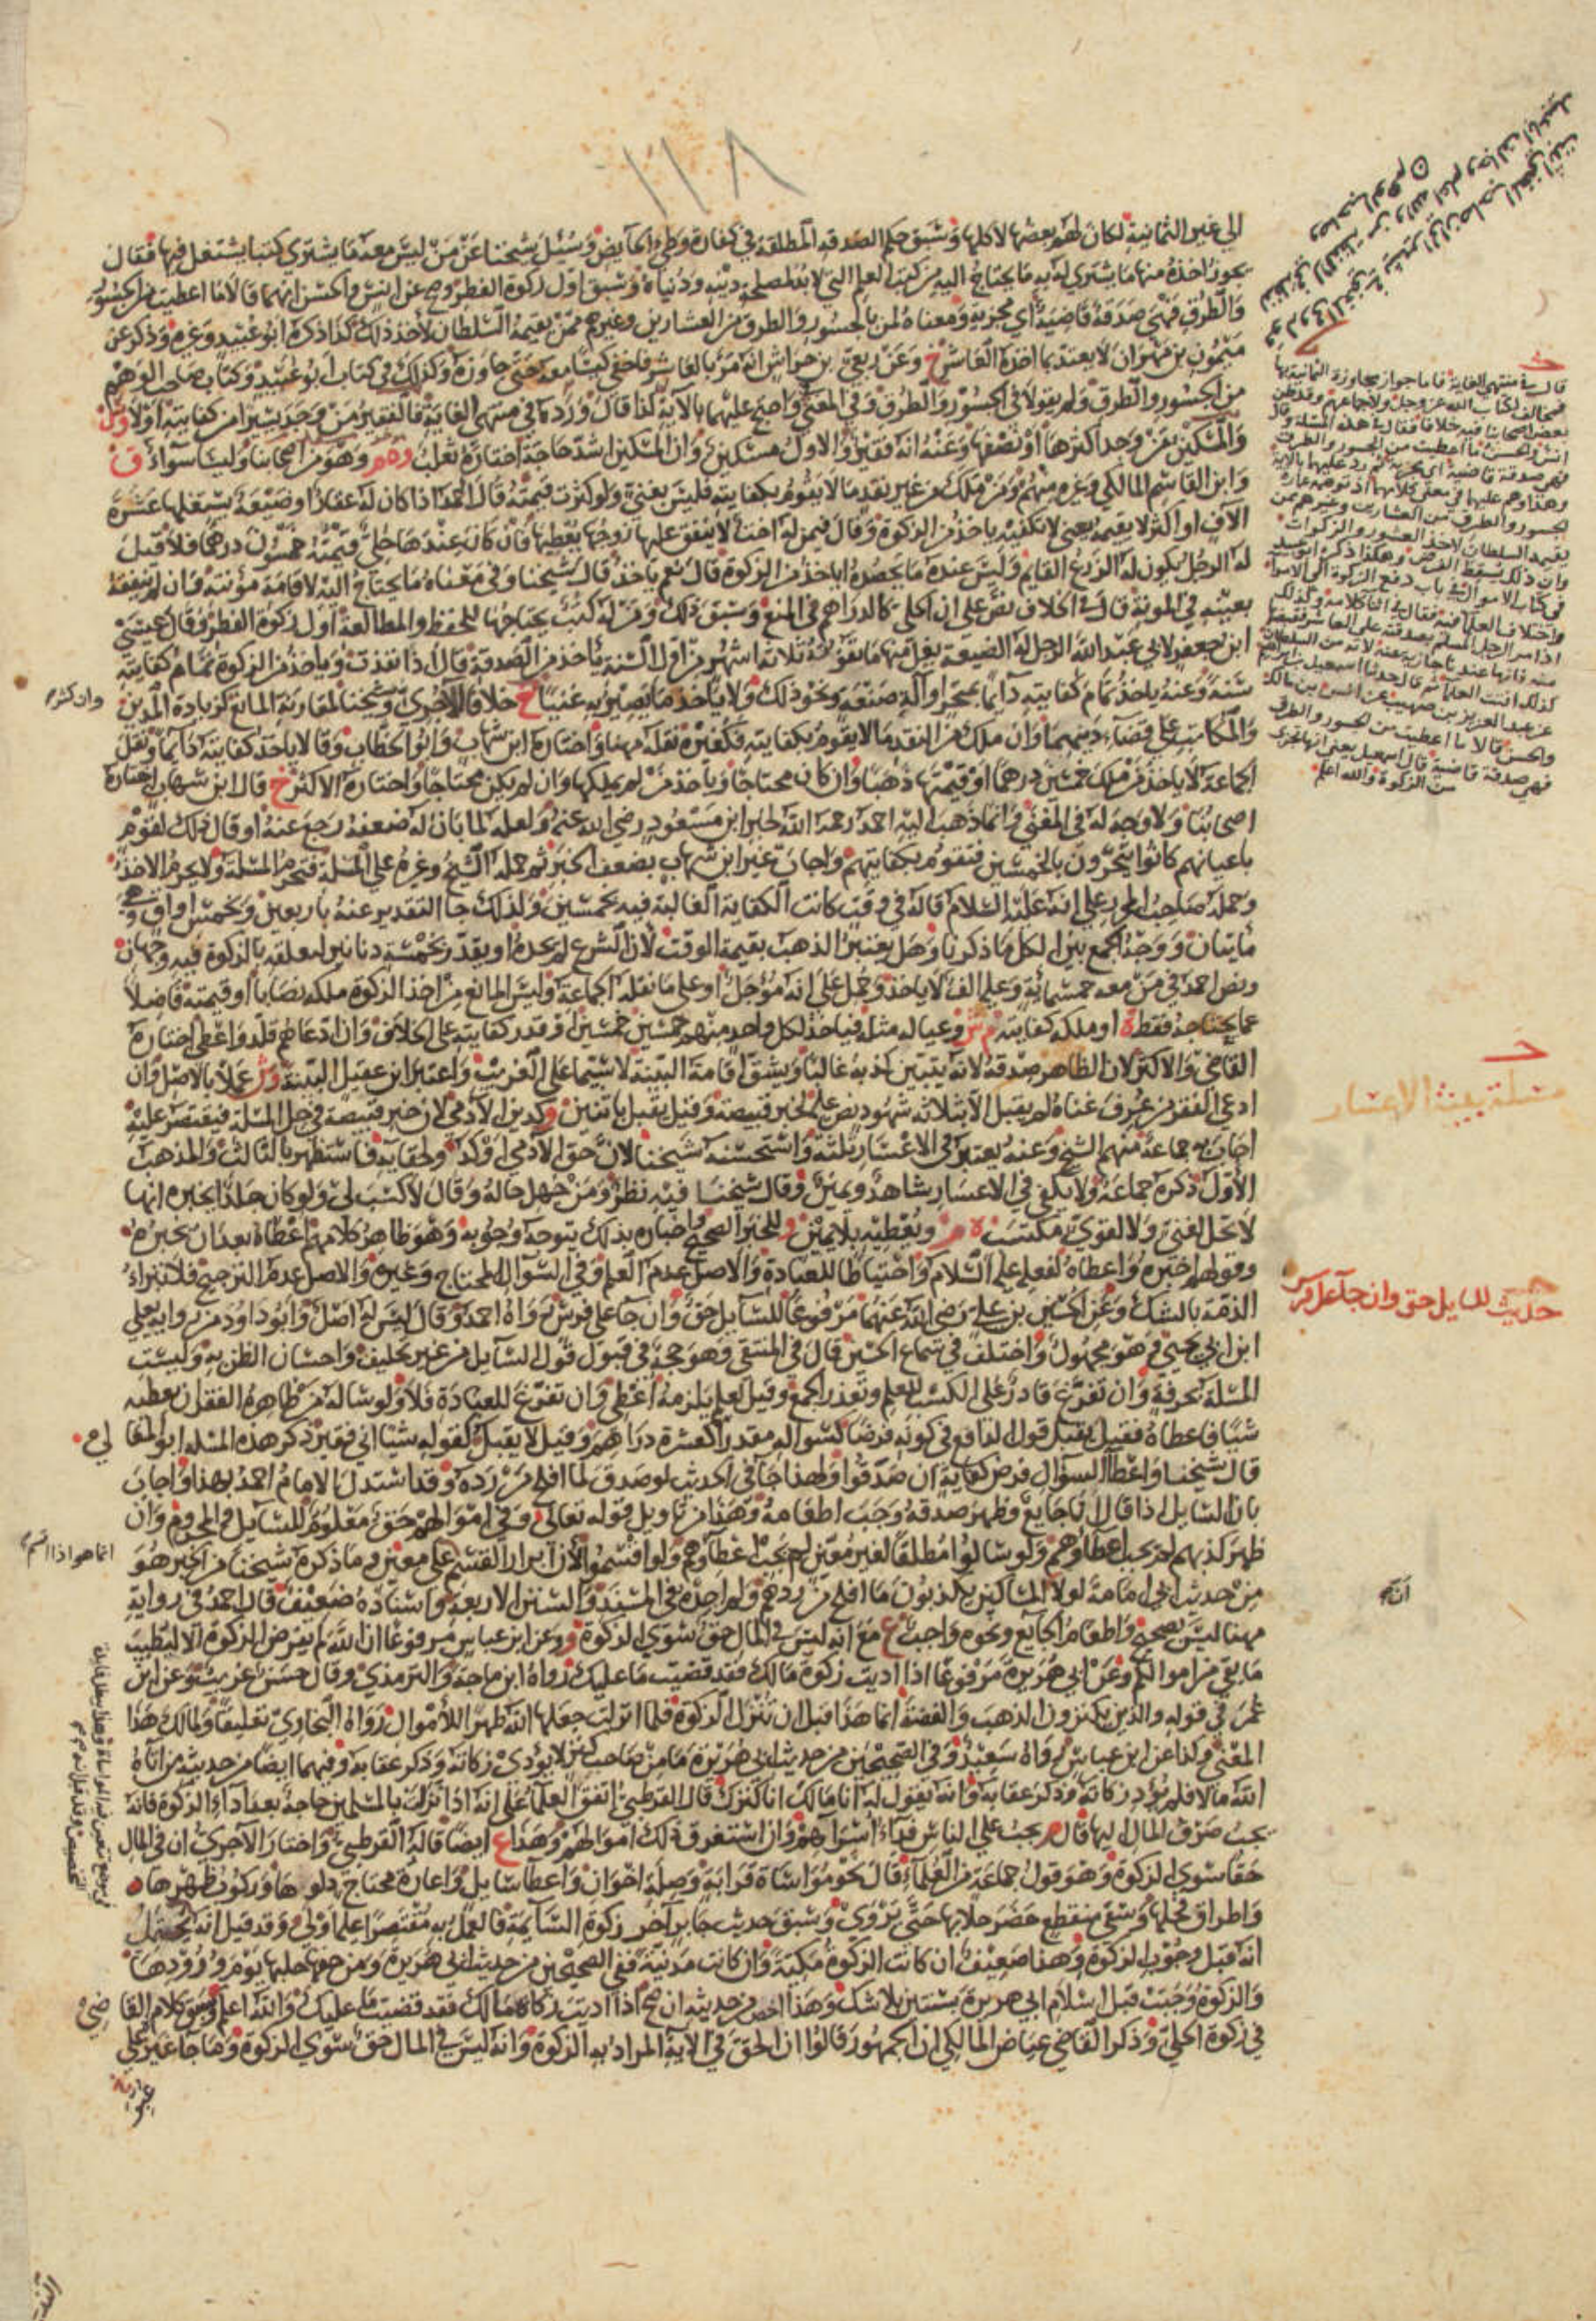 ١١٨
الى غير الثمانية لكان لهم بعضها لا كلها وسبق حكم الصدقة المطلقة في كفارة وطئ الحايض وسئل شيخنا عن من ليس معه ما يشتري كتبا يشتغل فيها فقال
يجوز اخذه منها ما يشتري له به ما يحتاج اليه من كتب العلم التي لا بد لمصلحة دينه ودنياه وسبق اول زكوة الفطر وصح عن انس والحسن انهما قالا ما اعطيت في الجسور
والطرق فهي صدقة قاضية اي مجزية ومعناه لمن بالجسور والطرق من العشارين وغيرهم ممن يقيمه السلطان لاخذ ذلك كذا ذكره ابو عبيد وغيره وذكر عن
ميمون بن مهران لا يعتد بما اخذه العاشر خ وعن ربعي بن حراش انه مر بالعاشر فاخفى كيسا معه حتى جاوزه وكذلك في كتاب ابو عبيد وكتاب صاحب الوهم
من الجسور والطرق ولم يقولا في الجسور والطرق وفي المغني واحتج عليهما بالآية كذا قال ورد ما في منتهى الغاية فالفقير من وجد يسيرا من كفايته اولا
والمسكين من وجد اكثرها او نصفها وعنه انه فقير والاول مسكين وان المسكين اشد حاجة اختاره ثعلب وهو من اصحابنا وليسا سواء
وابن القاسم المالكي وغيره منهم ومن ملك من غير نقد ما لا يقوم بكفايته فليس بغني ولو كثرت قيمته قال احمد اذا كان له عقار او ضيعة يستغلها عشرة
الآف او اكثر لا يقيمه يعني لا تكفيه ياخذ من الزكوة وقال فيمن له اخت لا ينفق عليها زوجها يعطيها فان كان عندها حلي قيمته خمسون درهما فلا قيل
له الرجل يكون له الزرع القايم وليس عنده ما يحصده اياخذ من الزكوة قال نعم ياخذ قال شيخنا وفي معناه ما يحتاج اليه لاقامة مؤنته وان لم ينفقه
بعينه في المونة قال في الخلاف نص على ان الحلي كالدراهم في المنع وسبق ذلك ومن له كتب يحتاجها للحفظ والمطالعة اول زكوة الفطر وقال عيسى
ابن جعفر لابي عبد الله الرجل له الضيعة يغل منها ما يقوته ثلاثة اشهر من اول السنة ياخذ من الصدقة قال اذا نفذت وياخذ من الزكوة تمام كفايته
سنة وعنه ياخذ تمام كفايته دايما بمتجر او آلة صنعة ونحو ذلك ولا ياخذ ما يصير به غنيا خ خلافا للآجري وشيخنا لمقارنة المانع كزيادة المدين
والمكاتب على قضاء دينهما وان ملك من النقد ما لا يقوم بكفايته فكغيره نقله مهنا واختاره ابن شهاب وابو الخطاب وقالا ياخذ كفايته دايما ونقل
الجماعة لا ياخذ من ملك خمسين درهما او قيمتها ذهبا وان كان محتاجا وياخذ من لم يملكها وان لم يكن محتاجا واختاره الاكثر خ قال ابن شهاب اختاره
اصحابنا ولا وجه له في المغني وانما ذهب اليه احمد رحمه الله لخبر ابن مسعود رضي الله عنه ولعله لما بان له ضعفه رجع عنه او قال ذلك لقوم
باعيانهم كانوا يتجرون بالخمسين فتقوم بكفايتهم واجاب غير ابن شهاب بضعف الخبر ثم حمله الشيخ وغيره على المسلة فتحرم المسلة ولا يحرم الاخذ
وحمله صاحب المحرر على انه عليه السلام قاله في وقت كانت الكفاية الغالبة فيه بخمسين ولذلك جا التقدير عنه باربعين وبخمس اواق وهي
مائتان ووجه الجمع بين الكل ما ذكرنا وهل يعتبر الذهب بقيمة الوقت لان الشرع لم يحده او يقدر بخمسة دنانير لتعلقه بالزكوة فيه وجهان
ونص احمد في من معه خمسمائة وعليه الف لا ياخذ وحمل على انه مؤجل او على ما نقله الجماعة وليس المانع من اخذ الزكوة ملكه نصابا او قيمته فاضلا
عما يحتاجه فقط او ملكه كفايته وعياله مثله فياخذ لكل واحد منهم خمسين خمسين او قدر كفايته على الخلاف وان ادعاهم قلد واعطي اختاره
القاضي والاكثر لان الظاهر صدقه لانه يتبين كذبه غالبا ويشق اقامة البينة لا سيما على الغريب واعتبر ابن عقيل البينة عملا بالاصل وان
ادعى الفقر من عرف غناه لم يقبل الا بثلاثة شهود نص عليه لخبر قبيصة وقيل يقبل باثنين وكدين الآدمي لان خبر قبيصة في حل المسلة فيقتصر عليه
اجاب به جماعة منهم الشيخ وعنه يعتبر في الاعسار ثلثة واستحسنه شيخنا لان حق الآدمي اوكد ولخفائه فاستظهر بالثالث والمذهب
الاول ذكره جماعة ولا يكفي في الاعسار شاهد ويمين وقال شيخنا فيه نظر ومن جهل حاله وقال لا كسب لي ولو كان جلدا يخبره انها
لا تحل لغني ولا لقوي مكتسب ويعطيه بلا يمين للخبر الصحيح واخباره بذلك يتوجه وجوبه وهو ظاهر كلامهم اعطاه بعد ان يخبره
وقولهم اخبره واعطاه لفعله عليه السلام واحتياطا للعبادة والاصل عدم العلم وفي السوال المحتاج وغيره والاصل عدم الترجيح فلا تبرا
الذمة بالشك وعن الحسين بن علي رضي الله عنهما مرفوعا للسايل حق وان جا على فرس رواه احمد وقال ليس له اصل وابو داود من رواية يعلى
ابن ابي يحيى وهو مجهول واختلف في سماع الحسين قال في المنتقى وهو حجة في قبول قول السايل من غير تحليف واحسان الظن به وليست
المسلة بحرفة وان تفرغ قادر على الكسب للعلم وتعذر الجمع وقيل لعلم يلزمه اعطي وان تفرغ للعبادة فلا ولو ساله من ظاهره الفقر ان يعطيه
شيئا فاعطاه فقيل يقبل قول الدافع في كونه قرضا كسواله مقدرا كعشرة دراهم وقيل لا يقبل كقوله شيئا اني فقير ذكر هذه المسلة ابو المعا لي
قال شيخنا واعطآ السوال فرض كفاية ان صدقوا ولهذا جآ في الحديث لو صدق لما افلح من رده وقد استدل الامام احمد بهذا واجاب
بان السايل اذا قال انا جايع وظهر صدقه وجب اطعامه وهذا من تاويل قوله تعالى وفي اموالهم حق معلوم للسايل والمحروم وان
ظهر كذبهم لم يجب اعطاوهم ولو سالوا مطلقا لغير معين لم يجب اعطاوهم ولو اقسموا لان ابرار القسم على معين وما ذكره شيخنا من الخبر هو
من حديث ابي امامة لولا ان المساكين يكذبون ما افلح من ردهم ولم اجده في المسند والسنن الاربعة واسناده ضعيف قال احمد في رواية
مهنا ليس بصحيح واطعام الجايع ونحوه واجب ع مع انه ليس في المال حق سوى الزكوة وعن ابن عباس مرفوعا ان الله لم يفرض الزكوة الا ليطيب
ما بقي من اموالكم وعن ابي هريرة مرفوعا اذا اديت زكوة مالك فقد قضيت ما عليك رواه ابن ماجه والترمذي وقال حسن غريب وعن ابن
عمر في قوله والذين يكنزون الذهب والفضة انما هذا قبل ان تنزل الزكوة فلما انزلت جعلها الله طهرا للاموال رواه البخاري تعليقا ولمالك هذا
المعنى وكذا عن ابن عباس رواه سعيد وفي الصحيحين من حديث ابي هريرة ما من صاحب كنز لا يؤدي زكاته وذكر عقابه وفيهما ايضا من حديثه من اتاه
الله مالا فلم يؤد زكاته وذكر عقابه وانه يقول له انا مالك انا كنزك قال القرطبي اتفق العلما على انه اذا نزلت بالمسلمين حاجة بعد اداء الزكوة فانه
يجب صرف المال اليها قال م يجب على الناس فداء اسراهم وان استغرق ذلك اموالهم وهذا ع ايضا قاله القرطبي واختار الآجري ان في المال
حقا سوى الزكوة وهو قول جماعة من العلمآء قال نحو مواساة قرابة وصلة اخوان واعطآ سايل واعارة محتاج دلوها وركوب ظهرها
واطراق فحلها وسقي منقطع حضر حلابها حتى يروي وسبق حديث جابر آخر زكوة السآيمة فالعمل به مقتصرا عليه اولى وقد قيل انه يحتمل
انه قبل وجوب الزكوة وهذا ضعيف ان كانت الزكوة مكية وان كانت مدنية ففي الصحيحين من حديث ابي هريرة ومن حقها حلبها يوم ورودها
والزكوة وجبت قبل اسلام ابي هريرة بسنتين بلا شك وهذا اخص من حديثه ان صح اذا اديت زكاة مالك فقد قضيت ما عليك والله اعلم وسبق كلام القا ضي
في زكوة الحلي وذكر القاضي عياض المالكي ان الجمهور قالوا ان الحق في الآية المراد به الزكوة وانه ليس في المال حق سوى الزكوة وما جا غير على
قال في منتهى الغاية فاما جواز مجاوزة الثمانية بها
فمخالف لكتاب الله عز وجل ولاجماعهم وقد ظن
بعض اصحابنا فيه خلافا فقال في هذه المسلة وقال
انس والحسن ما اعطيت من الجسور والطرق
فهي صدقة قاضية اي مجزية ثم رد عليهما بالآية
وهذا وهم عليهما في معنى كلامهما اذ توهمه عمارة
الجسور والطرق من العشارين وغيرهم ممن
يقيمه السلطان لاخذ العشور والزكوات
وان ذلك يسقط الفرض وهكذا ذكره ابو عبيد
في كتاب الاموال في باب دفع الزكوة الى الامرا
واختلاف العلما فيه فقال في اثنا كلامه وكذلك
اذا مر الرجل المسلم بصدقته على العاشر فقبضها
منه فانها عندنا جازية عنه لانه من السلطان
كذلك افتت العلما ثم قال حدثنا اسمعيل بن ابراهيم
عن عبد العزيز بن صهيب عن انس بن مالك
والحسن قالا ما اعطيت من الجسور والطرق
فهي صدقة قاضية قال اسمعيل يعني انها تجزي
من الزكوة والله اعلم
مسئلة بينة الاعسار
حديث للسايل حق وان جآ على فرس
وان كثر
انما هو اذا اقسم